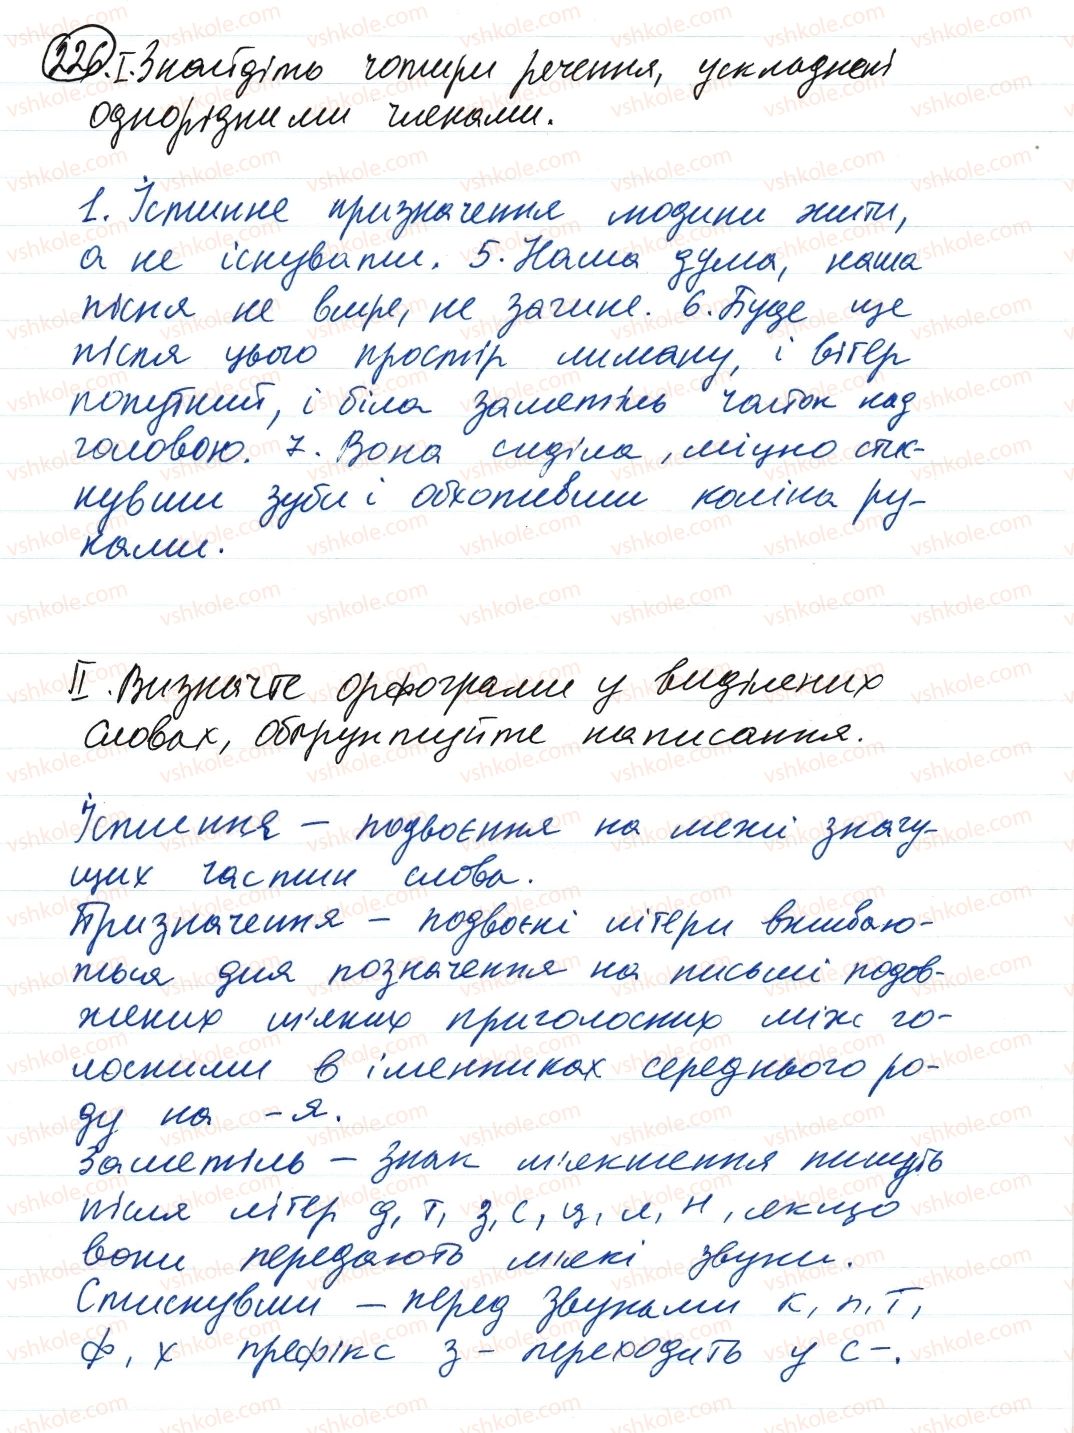 226. I. Знайдіть чотири речення, ускладнені
однорідними членами.
1. Істинне призначення людини жити,
а не існувати. 5. Наша дума, наша
пісня не вмре, не загине. 6. Буде ще
після цього простір лиману, і вітер
попутний, і біла заметіль чайок над
головою. 7. Вона сиділа, міцно стис-
нувши зуби і обхопивши коліна ру-
ками.
II. Визначте орфограми у виділених
словах, обґрунтуйте написання.
Істинне – подвоєння на межі значу-
щих частин слова.
Призначення – подвоєні літери вживаю-
ться для позначення на письмі подов-
жених м'яких приголосних між го-
лосними в іменниках середнього ро-
ду на -я.
Заметіль – знак м'якшення пишуть
після літер д, т, з, с, ц, л, н, якщо
вони передають м'які звуки.
Стиснувши – перед звуками к, п, т,
ф, х префікс з- переходить у с-.